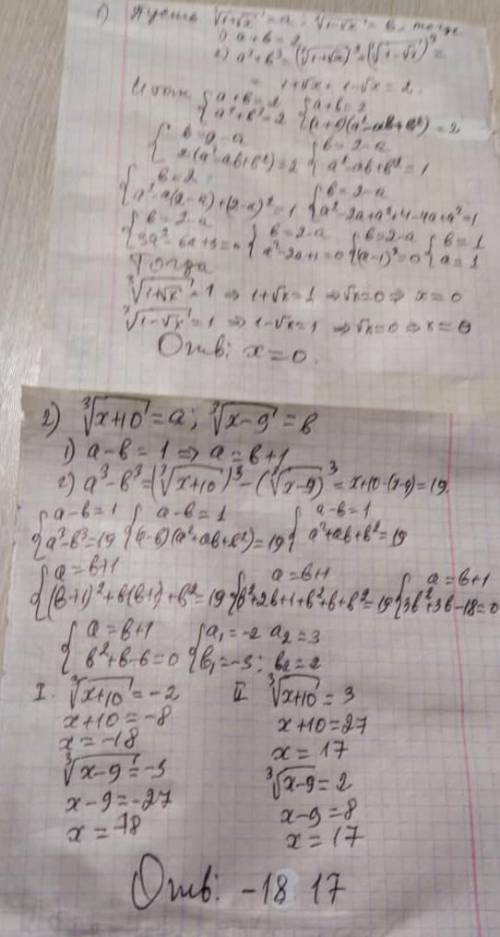 1) Пусть ∛(1+√x) = a; ∛(1-√x) = b, тогда
1) a+b=2
2) a³+b³=(∛(1+√x))³+(∛(1-√x))³=
= 1+√x+1-√x=2.
Итак {a+b=2 a³+b³=2 {a+b=2 (a+b)(a²-ab+b²)=2
{b=2-a 2(a²-ab+b²)=2 {b=2-a a²-ab+b²=1
{b=2-a a²-a(2-a)+(2-a)²=1 {b=2-a a²-2a+a²+4-4a+a²=1
{b=2-a 3a²-6a+3=0 {b=2-a a²-2a+1=0 {b=2-a (a-1)²=0 {b=1 a=1
Тогда
∛(1+√x)=1 ⇒ 1+√x=1 ⇒ √x=0 ⇒ x=0
∛(1-√x)=1 ⇒ 1-√x=1 ⇒ √x=0 ⇒ x=0
Отв: x=0.
2) ∛(x+10)=a; ∛(x-9)=b
1) a-b=1 ⇒ a=b+1
2) a³-b³=(∛(x+10))³-(∛(x-9))³=x+10-(x-9)=19.
{a-b=1 a³-b³=19 {a-b=1 (a-b)(a²+ab+b²)=19 {a-b=1 a²+ab+b²=19
{a=b+1 (b+1)²+b(b+1)+b²=19 {a=b+1 b²+2b+1+b²+b+b²=19 {a=b+1 3b²+3b-18=0
{a=b+1 b²+b-6=0 {a₁=-2 a₂=3 b₁=-3; b₂=2
I. ∛(x+10)=-2 II ∛(x+10)=3
x+10=-8 x+10=27
x=-18 x=17
∛(x-9)=-3 ∛(x-9)=2
x-9=-27 x-9=8
x=-18 x=17
Отв: -18 17